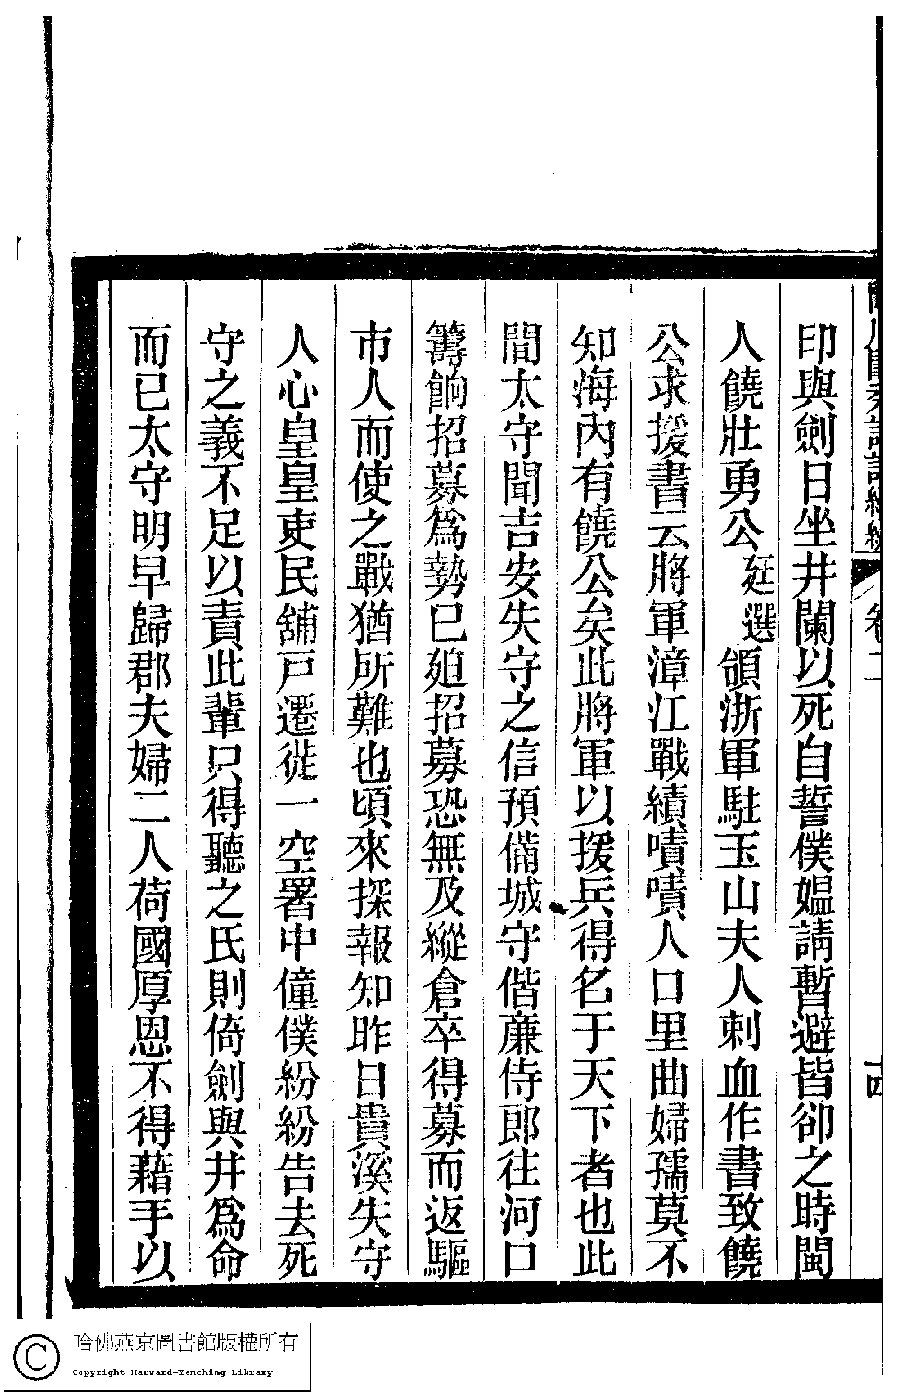 印與劍日坐井闌以死自誓僕媼請暫避皆卻之時閩
人饒壯勇公廷選頟浙軍駐玉山夫人刺血作書致饒
公求援書云將軍漳江戰績嘖嘖人口里曲婦孺莫不
知海內有饒公矣此將軍以援兵得名于天下者也此
間太守聞吉安失守之信預備城守偕廉侍郎往河口
籌餉招募爲勢已廹招募恐無及縱倉卒得募而返驅
市人而使之戰猶所難也頃來探報知昨日貴溪失守
人心皇皇吏民舖戸遷徙一空署中僮僕紛紛告去死
守之義不足以責此輩只得聽之氏則倚劍與井爲命
而已太守明早歸郡夫婦二人荷國厚恩不得藉手以
卷二
十四
哈佛燕京圖書館版權所有
Copyright Harvard-Yenching Library